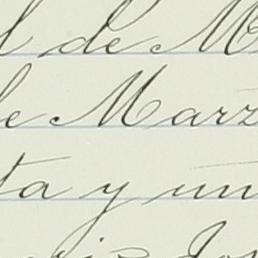 l de M
de Marz
ta y un